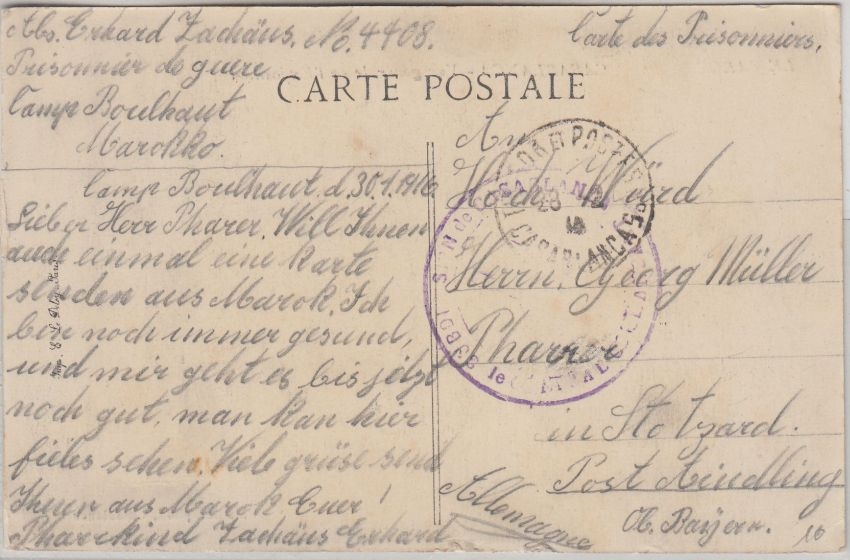 Abs. Erhard Zachäus. No. 4408.
Prisonnier de guere
Camp Boulhaut
Marokko.
Carte des Prisonniers.
CARTE POSTALE
Camp Boulhaut. d. 30.1.1916
Lieber Herr Pharer. Will Ihnen
auch einmal eine Karte
senden aus Marok. Ich
bin noch immer gesund,
und mir geht es bis jetzt
noch gut, man kan hier
fieles sehen. Viele grüse send
Ihnen aus Marok Euer!
Pharrkind Zachäus Erhard
An
Hoch Würd
Herrn. Georg Müller
Pharrer
in Stotzard.
Post Aindling
Ob. Bayern.
Allemagne
10
CASABLANCA